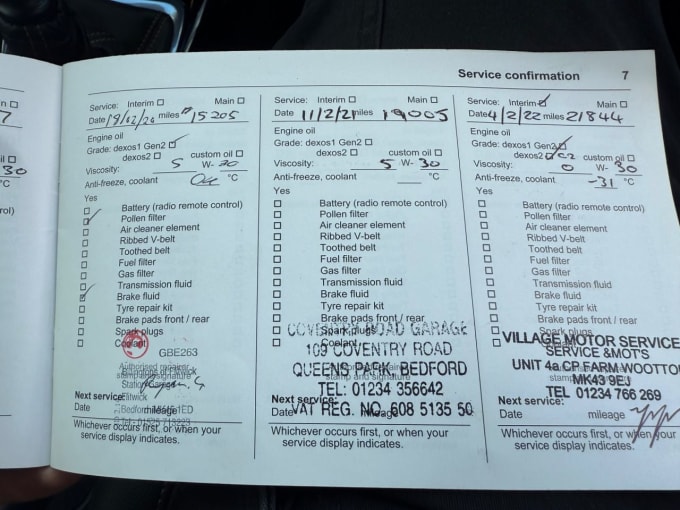 Service confirmation 7
Service: Interim ☐ Main ☐
Date miles 15205
Engine oil
Grade: dexos1 Gen2
dexos2 ☐ custom oil ☐
Viscosity: 5 W-
Anti-freeze, coolant °C
Yes
Battery (radio remote control)
Pollen filter
Air cleaner element
Ribbed V-belt
Toothed belt
Fuel filter
Gas filter
Transmission fluid
Brake fluid
Tyre repair kit
Brake pads front / rear
Spark plugs
Coolant
GBE263
Next service:
Date mileage
Whichever occurs first, or when your
service display indicates.
Service: Interim ☐ Main ☐
Date 11/2/21 miles 19005
Engine oil
Grade: dexos1 Gen2 ☐
dexos2 ☐ custom oil ☐
Viscosity: 5 W- 30
Anti-freeze, coolant °C
Yes
Battery (radio remote control)
Pollen filter
Air cleaner element
Ribbed V-belt
Toothed belt
Fuel filter
Gas filter
Transmission fluid
Brake fluid
Tyre repair kit
Brake pads front / rear
Spark plugs
Coolant
COVENTRY ROAD GARAGE
109 COVENTRY ROAD
QUEENS PARK, BEDFORD
stamp and signature
TEL: 01234 356642
Next service:
Date mileage
VAT REG. NO. 608 5135 50
Whichever occurs first, or when your
service display indicates.
Service: Interim Main ☐
Date 4/2/22 miles 21844
Engine oil
Grade: dexos1 Gen2
dexos2 C2 custom oil ☐
Viscosity: 0 W- 30
Anti-freeze, coolant -31 °C
Yes
Battery (radio remote control)
Pollen filter
Air cleaner element
Ribbed V-belt
Toothed belt
Fuel filter
Gas filter
Transmission fluid
Brake fluid
Tyre repair kit
Brake pads front / rear
Spark plugs
Coolant
VILLAGE MOTOR SERVICE
SERVICE & MOT'S
UNIT 4a CP FARM WOOTTO
MK43 9EJ
TEL 01234 766 269
Next service:
Date mileage
Whichever occurs first, or when your
service display indicates.